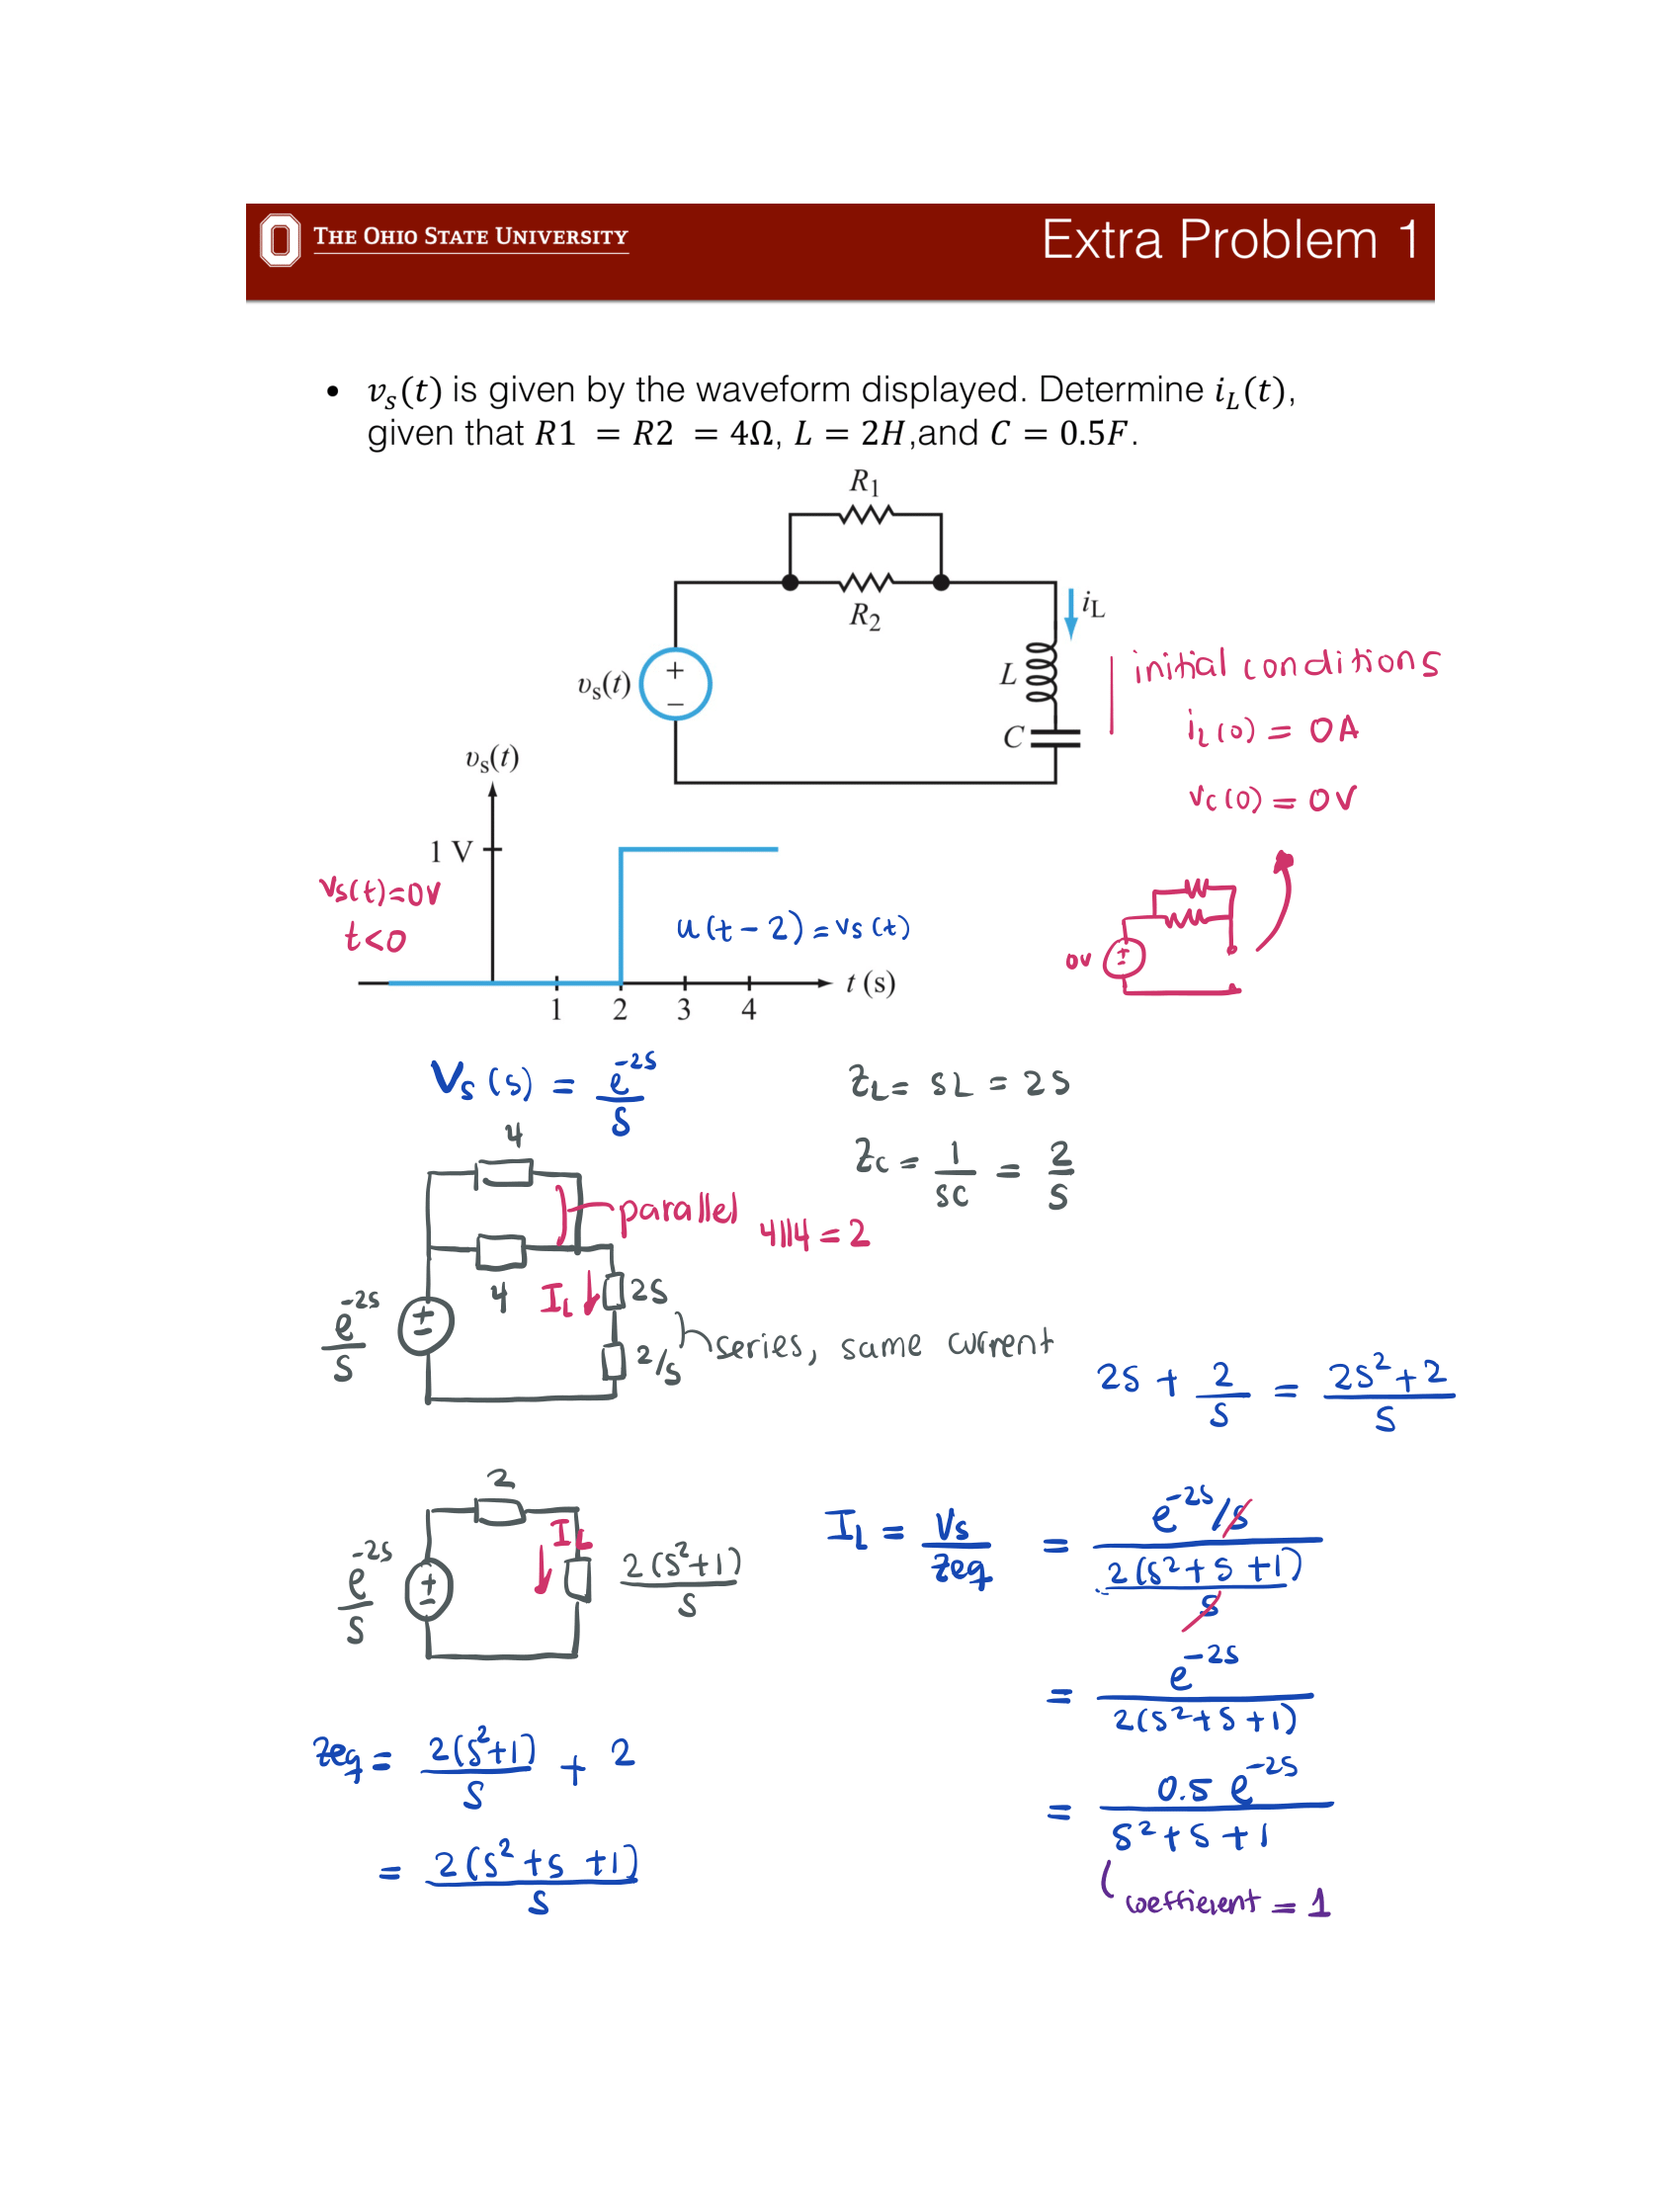 THE OHIO STATE UNIVERSITY
Extra Problem 1
• v_s(t) is given by the waveform displayed. Determine i_L(t),
given that R1 = R2 = 4Ω, L = 2H,and C = 0.5F.
R₁
R₂
i_L
υ_s(t)
+
−
L
C
initial conditions
i_L(0) = 0A
v_C(0) = 0V
υ_s(t)
1 V
v_s(t)=0V
t<0
u(t-2)=v_s(t)
0V
+
−
1 2 3 4
t (s)
V_s(s) = e^{-2s}/s
Z_L = sL = 2s
Z_C = 1/sC = 2/s
4
parallel
4||4=2
4
I_L
2s
e^{-2s}/s
+
−
2/s
series, same current
2s + 2/s = (2s²+2)/s
2
I_L
e^{-2s}/s
+
−
2(s²+1)/s
I_L = V_s/Zeq = (e^{-2s}/s)/(2(s²+s+1)/s)
= e^{-2s}/(2(s²+s+1))
Zeq = 2(s²+1)/s + 2
= 0.5 e^{-2s}/(s²+s+1)
= 2(s²+s+1)/s
coefficient = 1